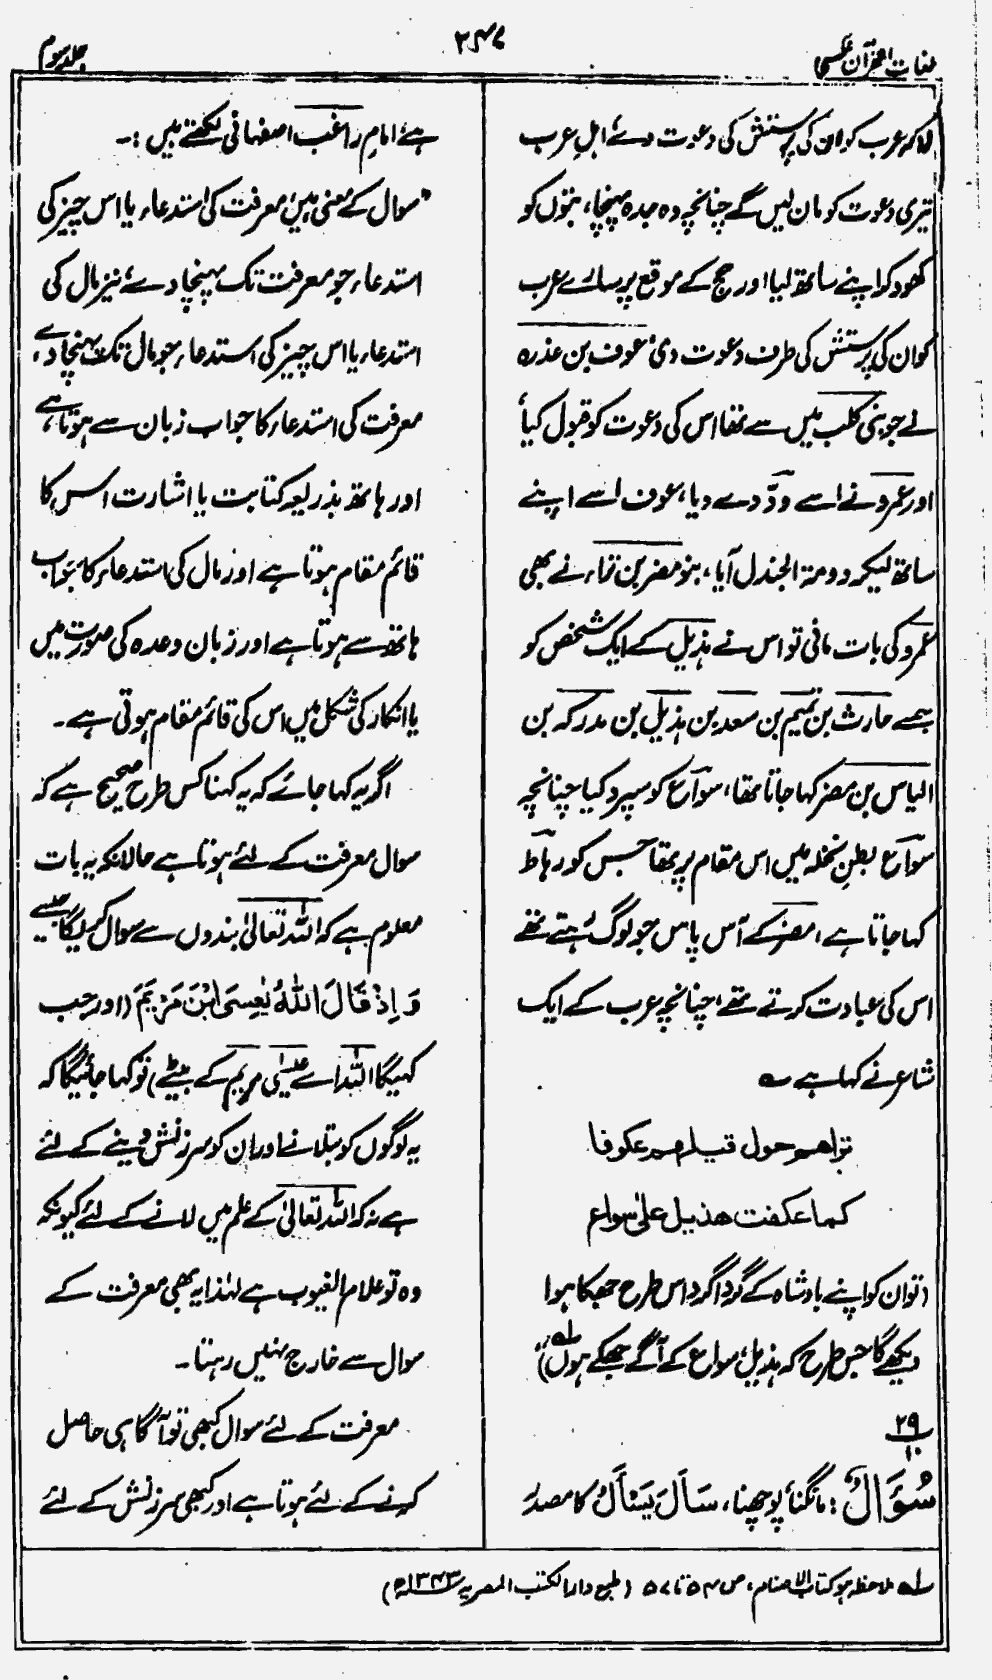 لغات القرآن عکسی
۲۴۷
جلد سوم
لاکر عرب کو ان کی پرستش کی دعوت دے، اہلِ عرب
تیری دعوت کو مان لیں گے چنانچہ وہ جدہ پہنچا، بتوں کو
کھود کر اپنے ساتھ لیا اور حج کے موقع پر سارے عرب
کو ان کی پرستش کی طرف دعوت دی، عوف بن عذرہ
نے جو بنی کلب میں سے تھا اس کی دعوت کو قبول کیا،
اور عمرو نے اسے ودّ دے دیا، عوف اسے اپنے
ساتھ لیکر دومۃ الجندل آیا، بنو مضر بن نزار نے بھی
عمرو کی بات مانی تو اس نے ہذیل کے ایک شخص کو
جسے حارث بن تمیم بن سعد بن ہذیل بن مدرکہ بن
الیاس بن مضر کہا جاتا تھا، سواع کو سپرد کیا چنانچہ
سواع بطنِ نخلہ میں اس مقام پر تھا جس کو رہاط
کہا جاتا ہے، مضر کے آس پاس جو لوگ رہتے تھے
اس کی عبادت کرتے تھے، چنانچہ عرب کے ایک
شاعر نے کہا ہے ؎
تراهم حول قيلهم عكوفا
كما عكفت هذيل على سواع
(تو ان کو اپنے بادشاہ کے گرداگرد اس طرح جھکا ہوا
دیکھے گا جس طرح کہ ہذیل، سواع کے آگے جھکے ہوں) لہ
۲۹
۱۰
سُؤَالٌ : مانگنا، پوچھنا، سَأَلَ يَسْأَلُ کا مصدر
ہے، امام راغب اصفہانی لکھتے ہیں :۔
"سوال کے معنی ہیں، معرفت کی استدعاء یا اس چیز کی
استدعاء جو معرفت تک پہنچا دے، نیز مال کی
استدعاء یا اس چیز کی استدعاء جو مال تک پہنچا دے،
معرفت کی استدعاء کا جواب زبان سے ہوتا ہے،
اور ہاتھ بذریعہ کتابت یا اشارت اس کا
قائم مقام ہوتا ہے اور مال کی استدعاء کا جواب
ہاتھ سے ہوتا ہے اور زبان وعدہ کی صورت میں
یا انکار کی شکل میں اس کی قائم مقام ہوتی ہے۔
اگر یہ کہا جائے کہ یہ کہنا کس طرح صحیح ہے کہ
سوال معرفت کے لئے ہوتا ہے حالانکہ یہ بات
معلوم ہے کہ اللہ تعالیٰ بندوں سے سوال کریگا جیسے
وَإِذْ قَالَ اللّٰهُ يٰعِيسَى ابْنَ مَرْيَمَ (اور جب
کہیگا اللہ اے عیسٰی مریم کے بیٹے) تو کہا جائیگا کہ
یہ لوگوں کو بتلانے اور ان کو سرزنش دینے کے لئے
ہے نہ کہ اللہ تعالیٰ کے علم میں لانے کے لئے کیونکہ
وہ تو علام الغیوب ہے لہٰذا یہ بھی معرفت کے
سوال سے خارج نہیں رہتا۔
معرفت کے لئے سوال کبھی تو آگاہی حاصل
کرنے کے لئے ہوتا ہے اور کبھی سرزنش کے لئے
لہ ملاحظہ ہو کتاب الاصنام، ص ۵۴ تا ۵۷ (طبع دار الکتب المصریہ ۱۳۴۳ھ)